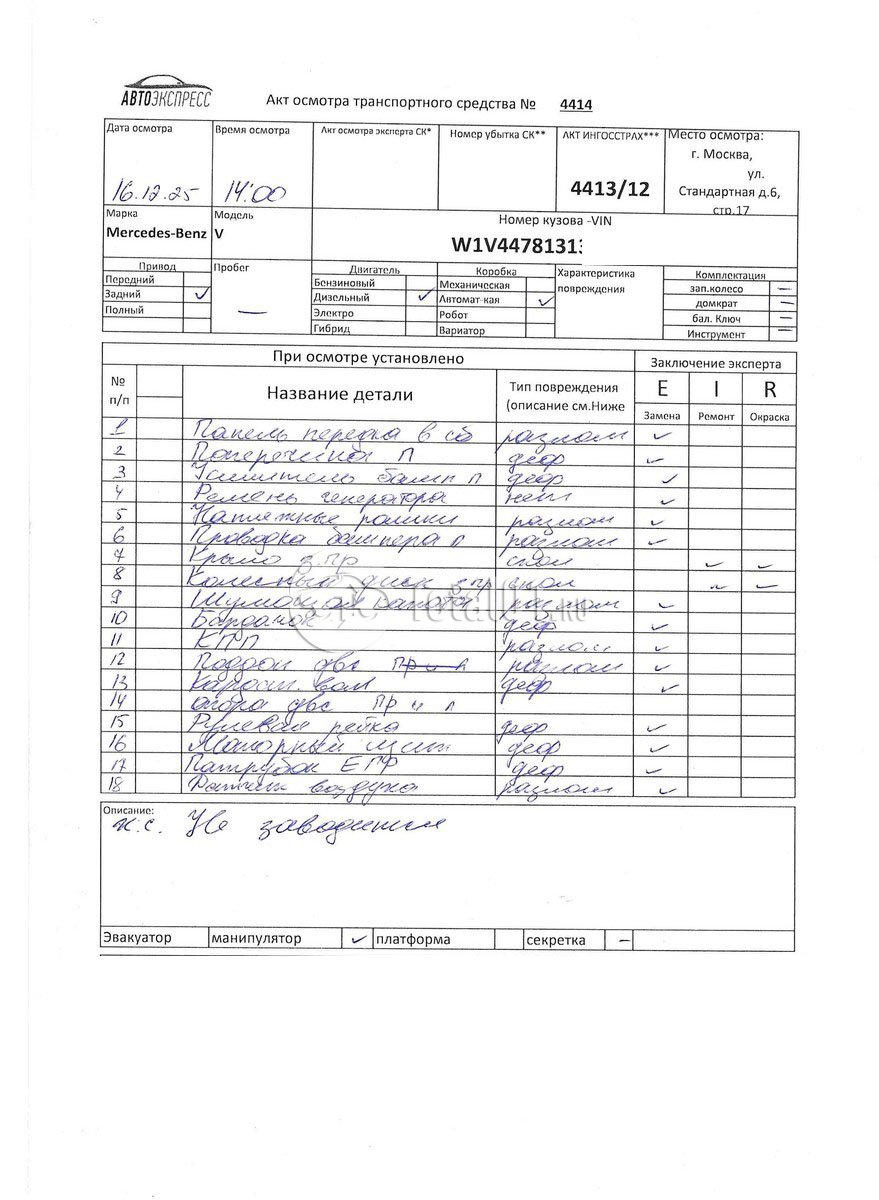 АВТОЭКСПРЕСС
Акт осмотра транспортного средства № 4414
Дата осмотра Время осмотра Акт осмотра эксперта СК* Номер убытка СК** АКТ ИНГОССТРАХ*** Место осмотра:
г. Москва,
ул.
16.12.25 14:00 4413/12 Стандартная д.6,
стр.17
Марка Модель Номер кузова -VIN
Mercedes-Benz V W1V44781313
Привод Пробег Двигатель Коробка Характеристика повреждения Комплектация
Передний Бензиновый Механическая зап.колесо —
Задний ✓ Дизельный ✓ Автомат-кая ✓ домкрат —
Полный — Электро Робот бал. Ключ —
Гибрид Вариатор Инструмент —
При осмотре установлено Заключение эксперта
№ п/п Название детали Тип повреждения (описание см.Ниже E I R
Замена Ремонт Окраска
1 Панель передка в сб разлом ✓
2 Поперечина П деф ✓
3 Усилитель бамп п деф ✓
4 Ремень генератора нет ✓
5 Натяжные ролики разлом ✓
6 Проводка бампера п разлом ✓
7 Крыло з пр скол ✓ ✓
8 Колесный диск з пр скол ✓ ✓
9 Шумоизол капота разлом ✓
10 деф ✓
11 КПП разлом ✓
12 Поддон двс разлом ✓
13 вал деф ✓
14 опора двс пр и л
15 Рулевая рейка деф ✓
16 Моторный щит деф ✓
17 Патрубок деф ✓
18 Датчик воздуха разлом ✓
Описание:
н.с. Не заводится
Эвакуатор манипулятор ✓ платформа секретка —
Total01.RU